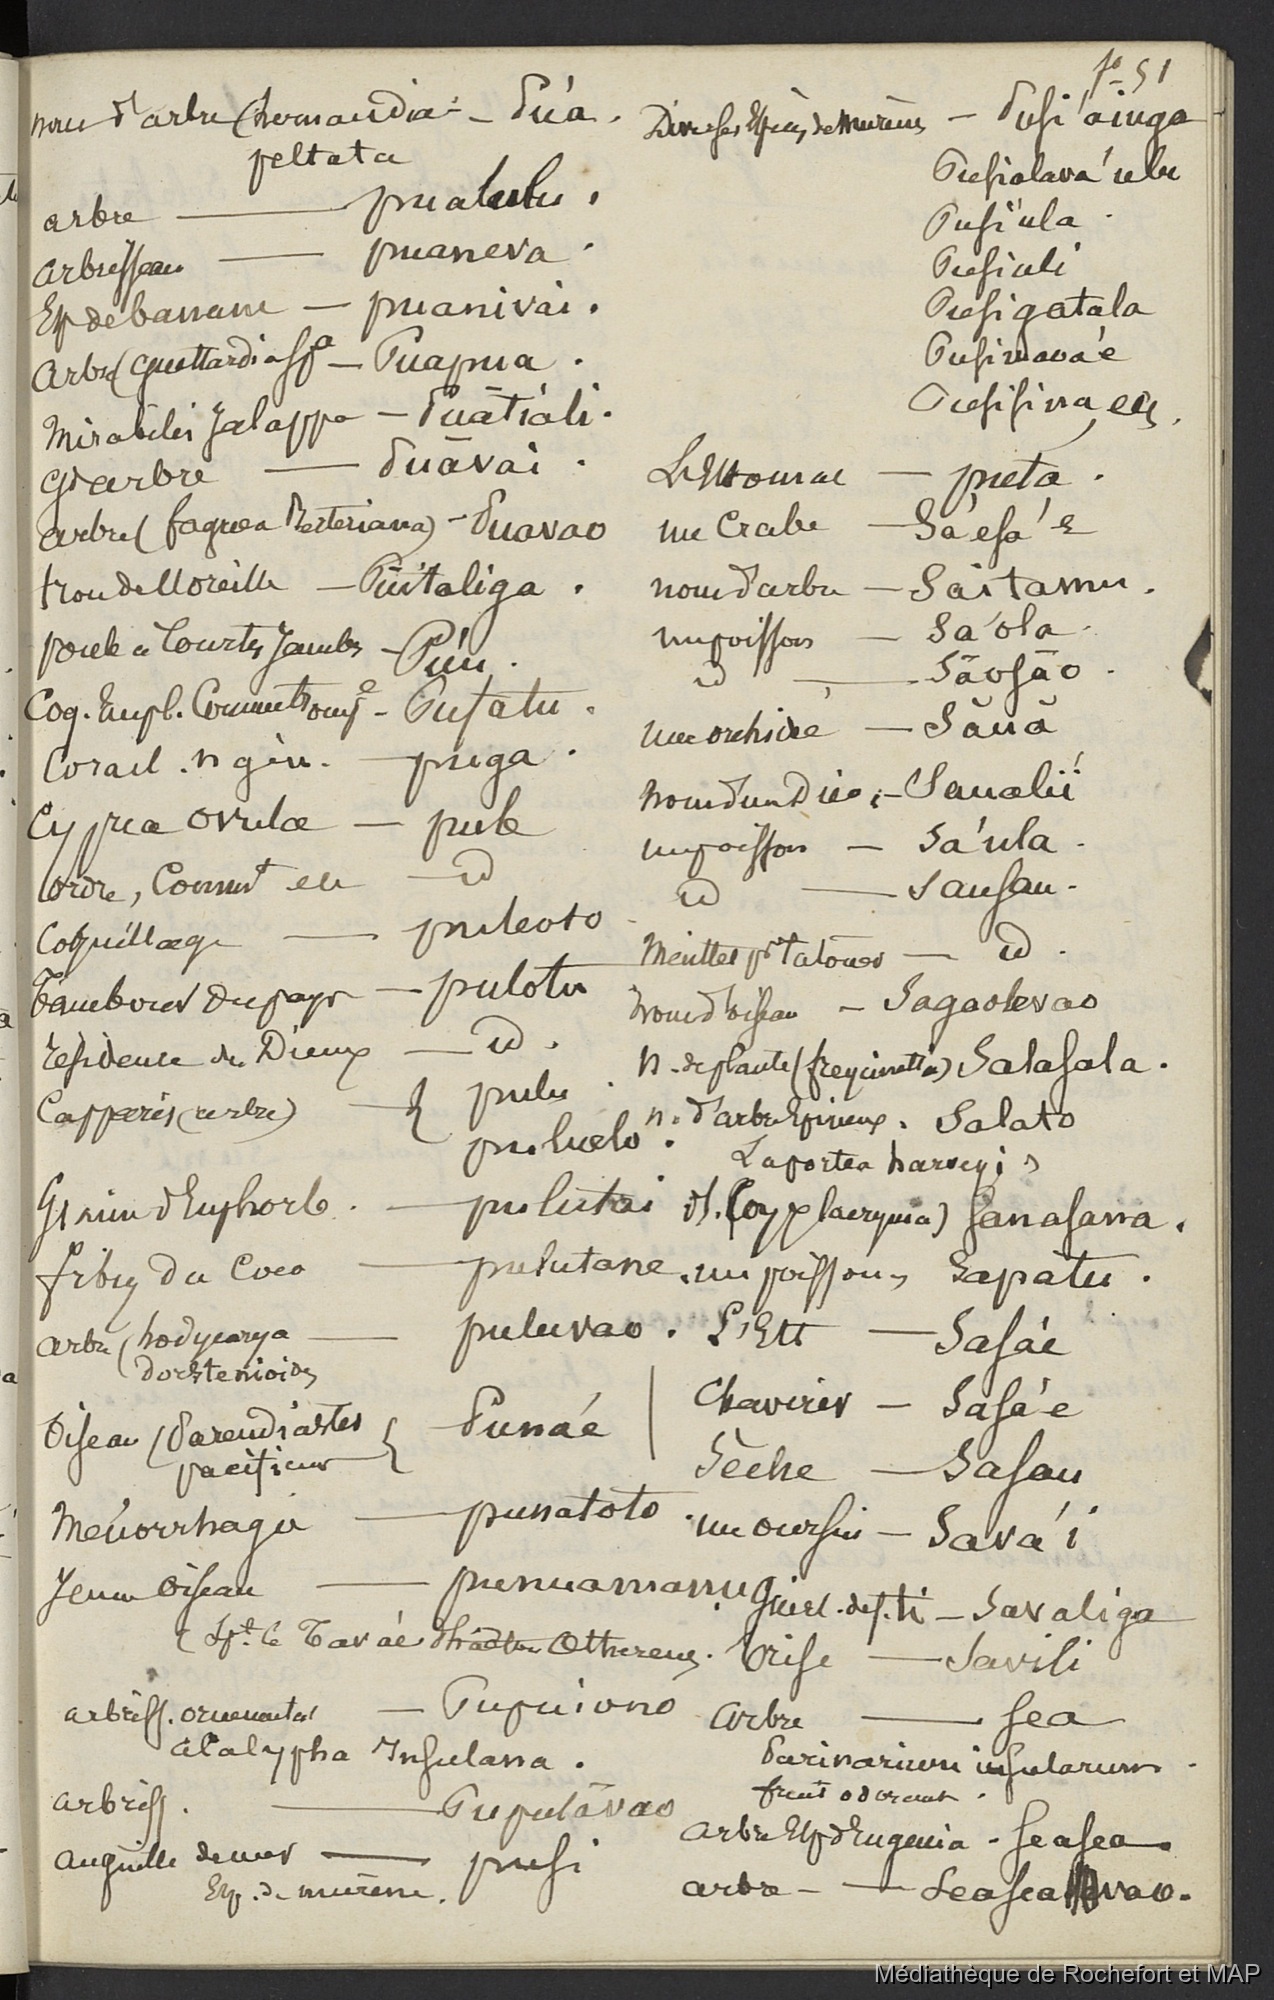 fo 51
nom d'arbre (hernandia - Puá.
peltata
arbre — pualulu.
arbrisseau — puaneva.
Esp de banane — puanivai.
Arbre (Guettardia spa — Puapua.
Mirabilis Jalappa — Puātiali.
Gd arbre — Puāvai.
arbre (fagroea Berteriana) - Puavao
trou de l'oreille — Puítaliga.
poule à Courtes Jambes - Púu.
Coq. Empl. Comme trompe - Pufatu.
Corail. n gén. — puga.
Cyprea ovulae — pule
ordre, Commt etc — id
Coquillage — puleoto
Tambour du pays — pulotu
résidence des Dieux — id.
Capparis (arbre) — { pulu.
pulualo.
Graine d'Euphorbe. — pulutai
fibres du Coco — pulutane.
arbre (bodycarya — puluvao.
dorstenioides
Oiseau (Pareudiastes { Punáé
pacificus
Mémorrhagie — punatoto.
Jeune Oiseau — punuamanu.
(spt le Tavaé Phaeton Othereus.
arbriss. ornemental — Pupuiono
acalypha Insulana.
arbriss. — Pupulāvao
anguille de mer — pusi
Esp. de murène.
Diverses Espèces de Murènes — Pusi'ainga
Pusialava'ulu
Pusi'ula.
Pusiuli
Pusigatala
Pusimavaé
Pusisina etc.
L'Estomac — puta.
un Crabe — Sá'esá'e
nom d'arbre — Saitamu.
un poisson — Sa'ola.
id — Sāosāo.
une orchidée — Sāuā
nom d'un Dieu — Saualií
un poisson — Sa'ula.
id — Sausau.
Meilleur pr Tatouer — id.
nom d'oiseau — Sagaolevao
n. de plante (freycinettia) Salasala.
n. d'arbre Epineux. Salato
Laportea harveyi
d. (Coyx lacryma) Sanasana.
un poisson, Sapatu.
L'Est — Sasáé
Chavirer — Sasá'e
Sèche — Sasau
un oursin — Savá'i
Guirl. de f. ti — Savaliga
brise — Savili
Arbre — Sea
Parinarium insularum.
fruit odorant.
Arbre Esp d'Eugenia - Seasea
arbre — Seaseavao.
Médiathèque de Rochefort et MAP